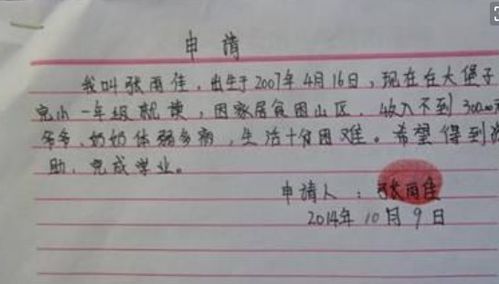 申请
我叫张雨佳，出生于2007年4月16日，现在在大堡子
完小一年级就读，因家居贫困山区，收入不到300
爷爷、奶奶体弱多病，生活十分困难。希望得到
助，完成学业。
申请人：张雨佳
2014年10月9日